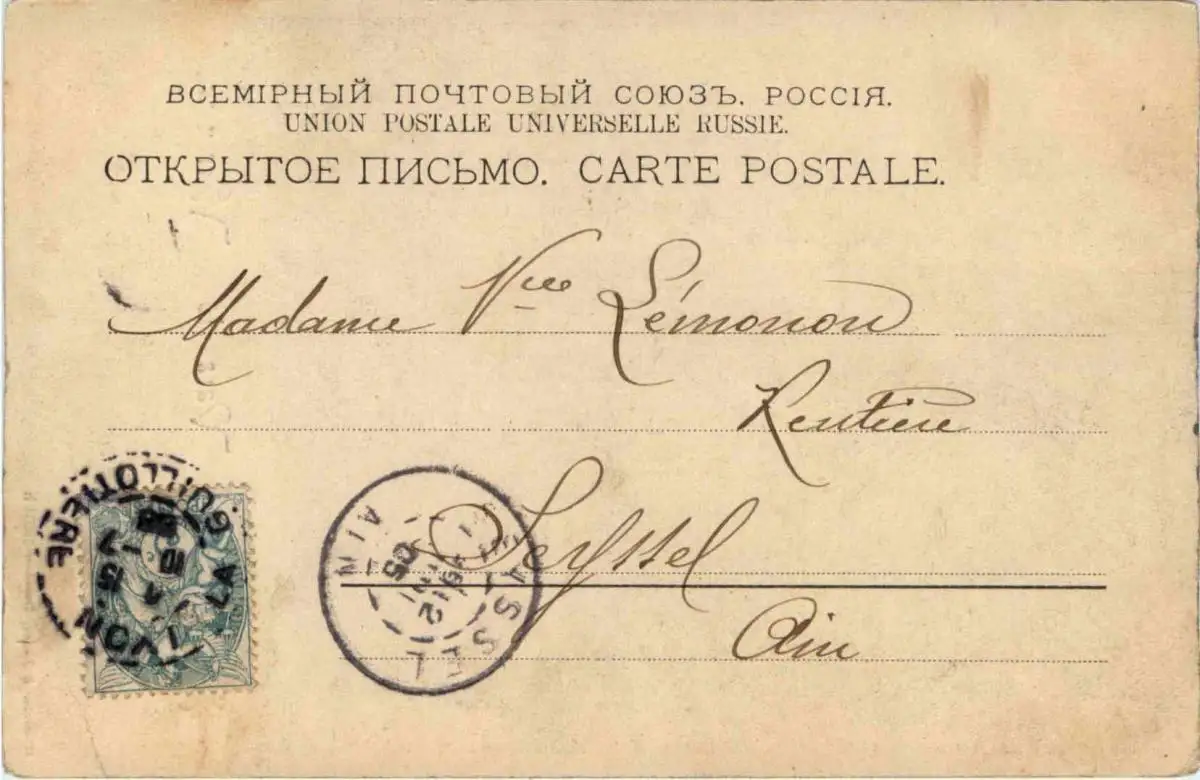 ВСЕМІРНЫЙ ПОЧТОВЫЙ СОЮЗЪ. РОССІЯ.
UNION POSTALE UNIVERSELLE RUSSIE.
ОТКРЫТОЕ ПИСЬМО. CARTE POSTALE.
Madame Vve Lémonon
Rentière
Seyssel
Ain
LYON . LA GUILLOTIERE
SEYSSEL
AIN
05